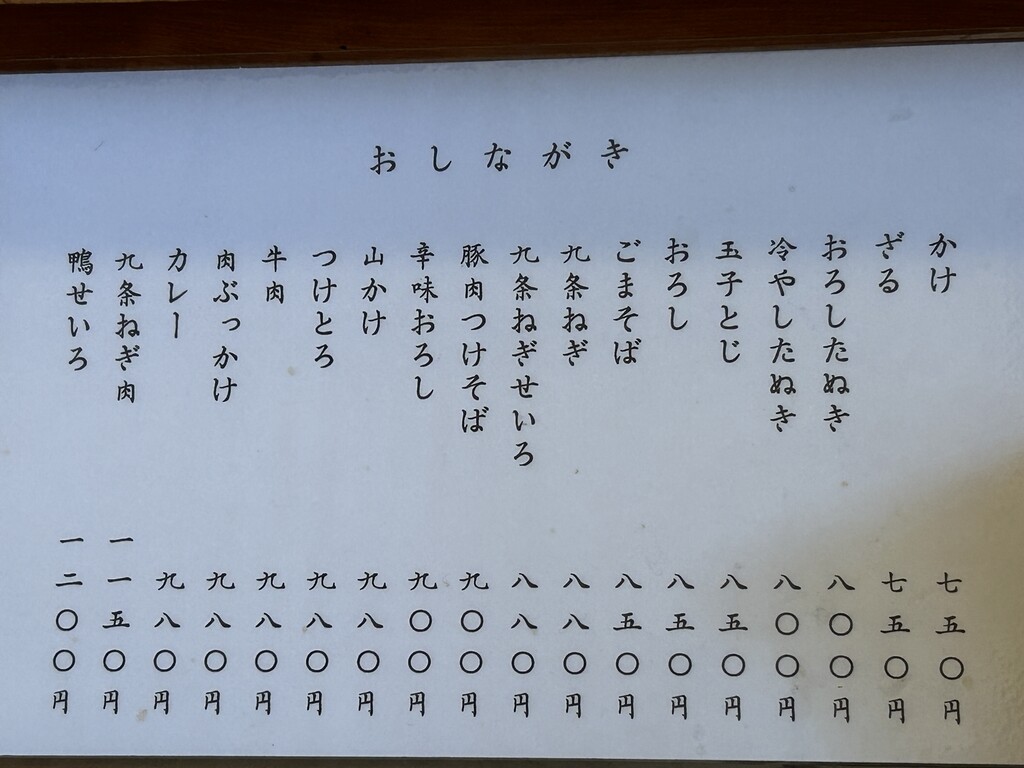 おしながき
かけ 七五〇円
ざる 七五〇円
おろしたぬき 八〇〇円
冷やしたぬき 八〇〇円
玉子とじ 八五〇円
おろし 八五〇円
ごまそば 八五〇円
九条ねぎ 八八〇円
九条ねぎせいろ 八八〇円
豚肉つけそば 九〇〇円
辛味おろし 九〇〇円
山かけ 九八〇円
つけとろ 九八〇円
牛肉 九八〇円
肉ぶっかけ 九八〇円
カレー 九八〇円
九条ねぎ肉 一一五〇円
鴨せいろ 一二〇〇円